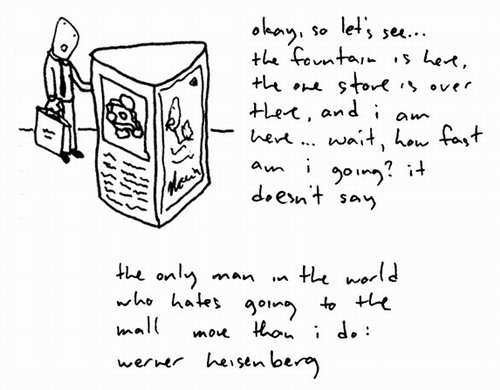 okay, so let's see...
the fountain is here,
the one store is over
there, and i am
here... wait, how fast
am i going? it
doesn't say
the only man in the world
who hates going to the
mall more than i do:
werner heisenberg